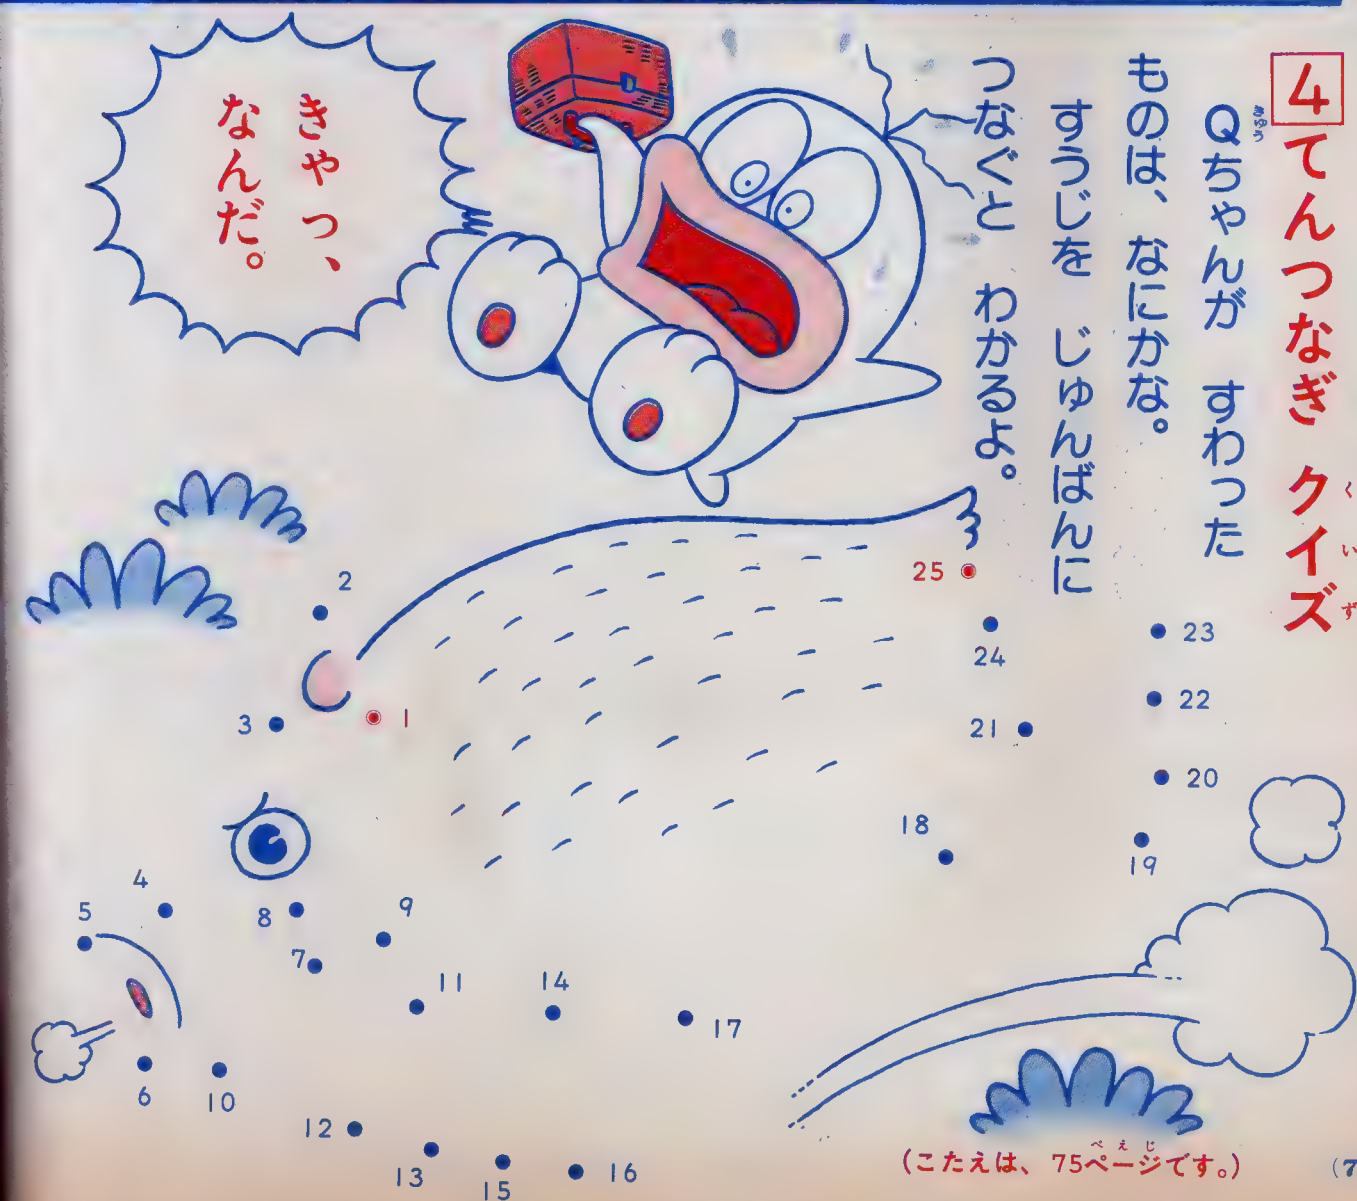 4 てんつなぎ クイズ
くいず
Qちゃんが すわった
きゅう
ものは、なにかな。
すうじを じゅんばんに
つなぐと わかるよ。
きゃっ、
なんだ。
1
2
3
4
5
6
7
8
9
10
11
12
13
14
15
16
17
18
19
20
21
22
23
24
25
(こたえは、75ページです。)
ぺえじ
(7